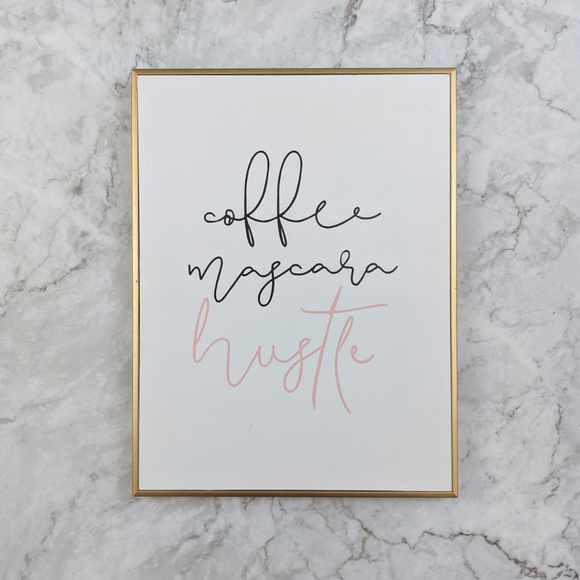 coffee
mascara
hustle